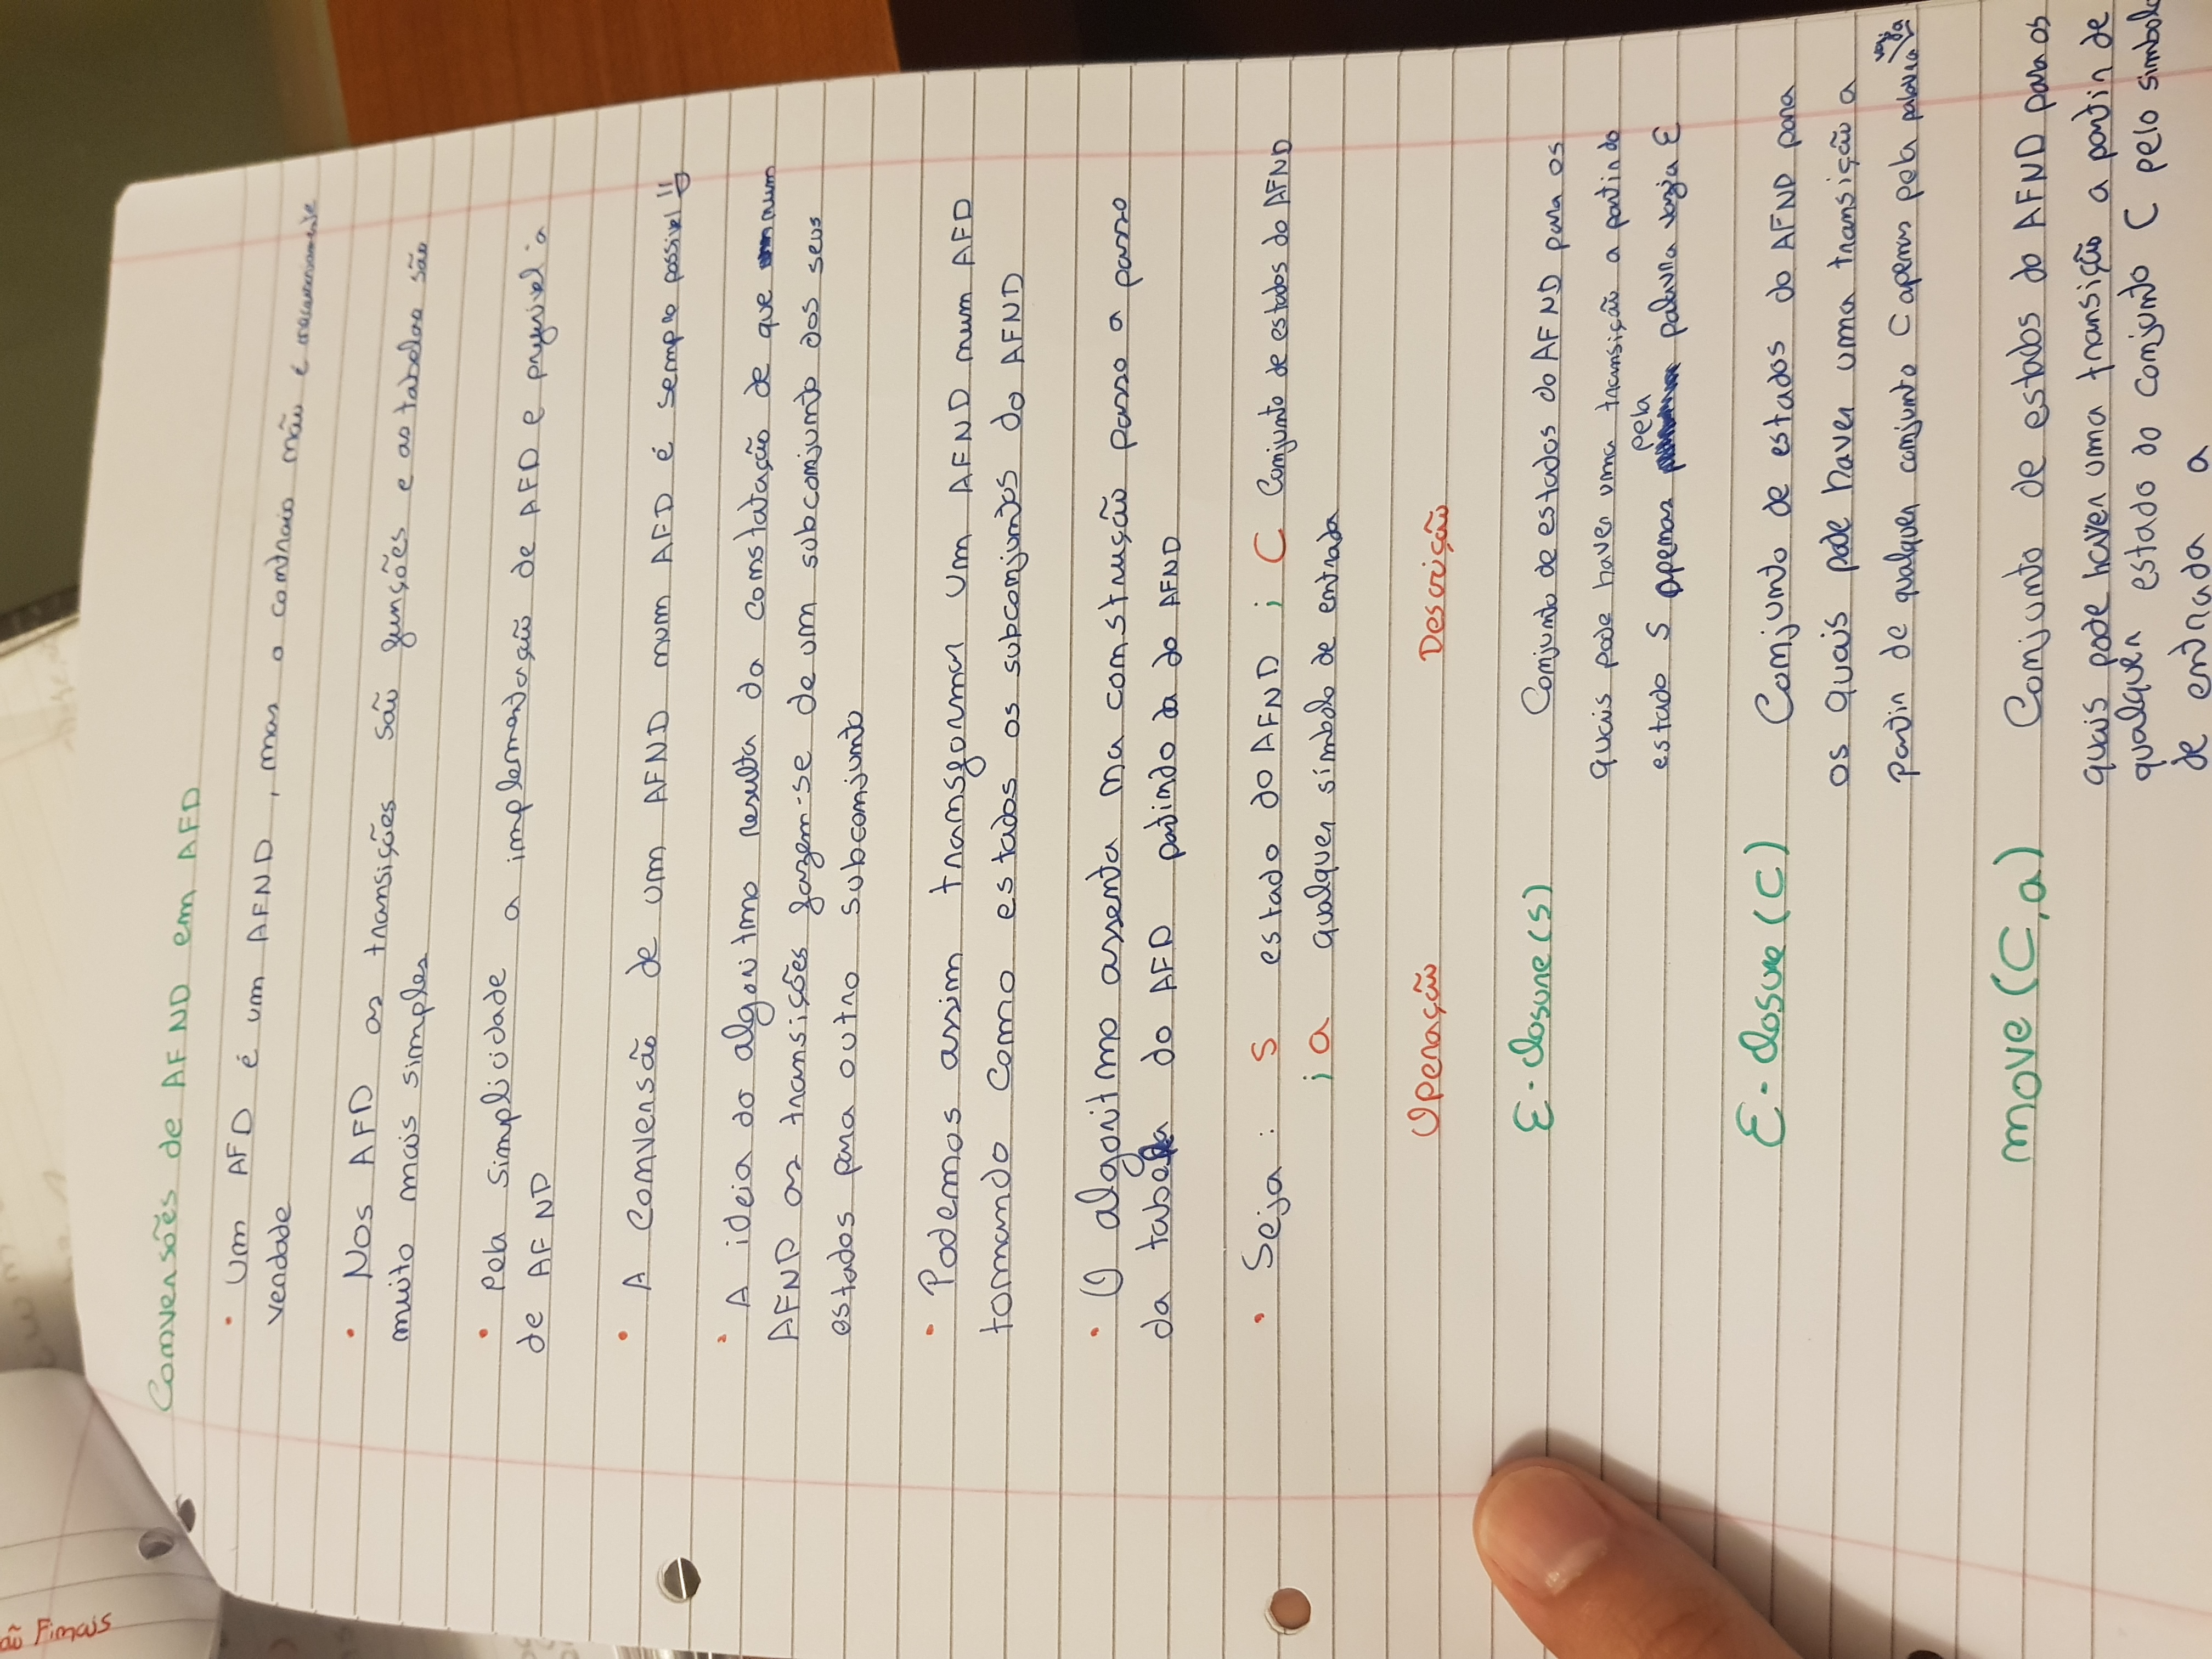 ão Finais
Conversões de AFND em AFD
• Um AFD é um AFND, mas o contraio não é necessariamente
verdade
• Nos AFD as transições são funções e as tabelas são
muito mais simples
• Pela simplicidade a implementação de AFD e preferivel à
de AFND
• A conversão de um AFND num AFD é sempre possivel !!
• A ideia do algoritmo resulta da constatação de que num
AFND as transições fazem-se de um subconjunto dos seus
estados para outro subconjunto
• Podemos assim transformar um AFND num AFD
tornando como estados os subconjuntos do AFND
• O algoritmo assenta na construção passo a passo
da tabela do AFD partindo da do AFND
• Seja : S estado do AFND ; C Conjunto de estados do AFND
; a qualquer símbolo de entrada
Operação Descrição
ε-closure(s) Conjunto de estados do AFND para os
quais pode haver uma transição a partir do
estado S apenas pela palavra vazia ε
ε-closure(C) Conjunto de estados do AFND para
os quais pode haver uma transição a
partir de qualquer conjunto C apenas pela palavra vazia
move(C,a) Conjunto de estados do AFND para os
quais pode haver uma transição a partir de
qualquer estado do conjunto C pelo simbolo
de entrada a